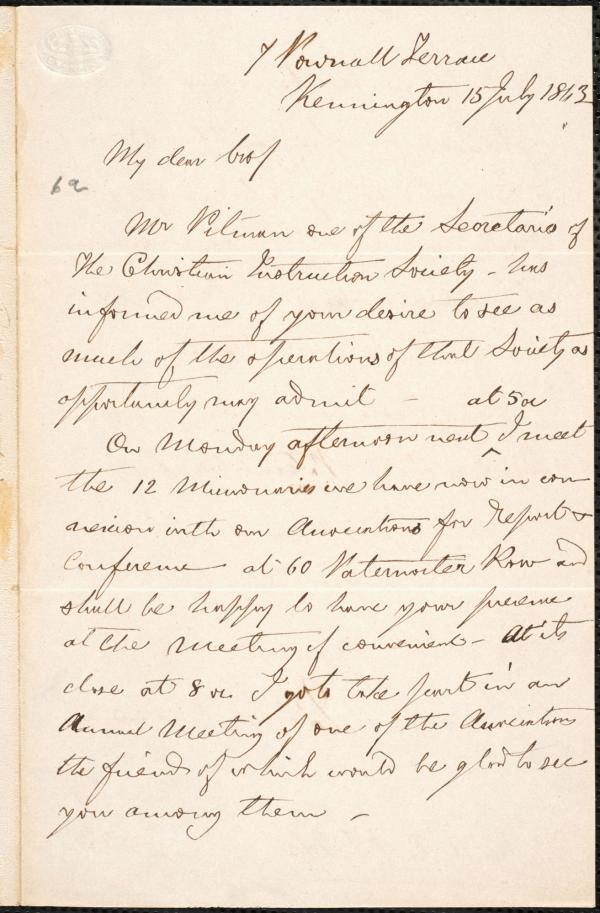 7 Pownall Terrace
Kennington 15 July 1843
My dear Prof
62
Mr Pitman one of the Secretaries of
the Christian Instruction Society - has
informed me of your desire to see as
much of the operations of that Society as
opportunity may admit - at 5 oc
On Monday afternoon next ^ I meet
the 12 Missionaries we have now in con
nexion with our Associations for Report &
Conference at 60 Paternoster Row and
shall be happy to have your presence
at the Meeting if convenient - At its
close at 8 oc I go to take part in an
Annual Meeting of one of the Associations
the friends of which would be glad to see
you among them -